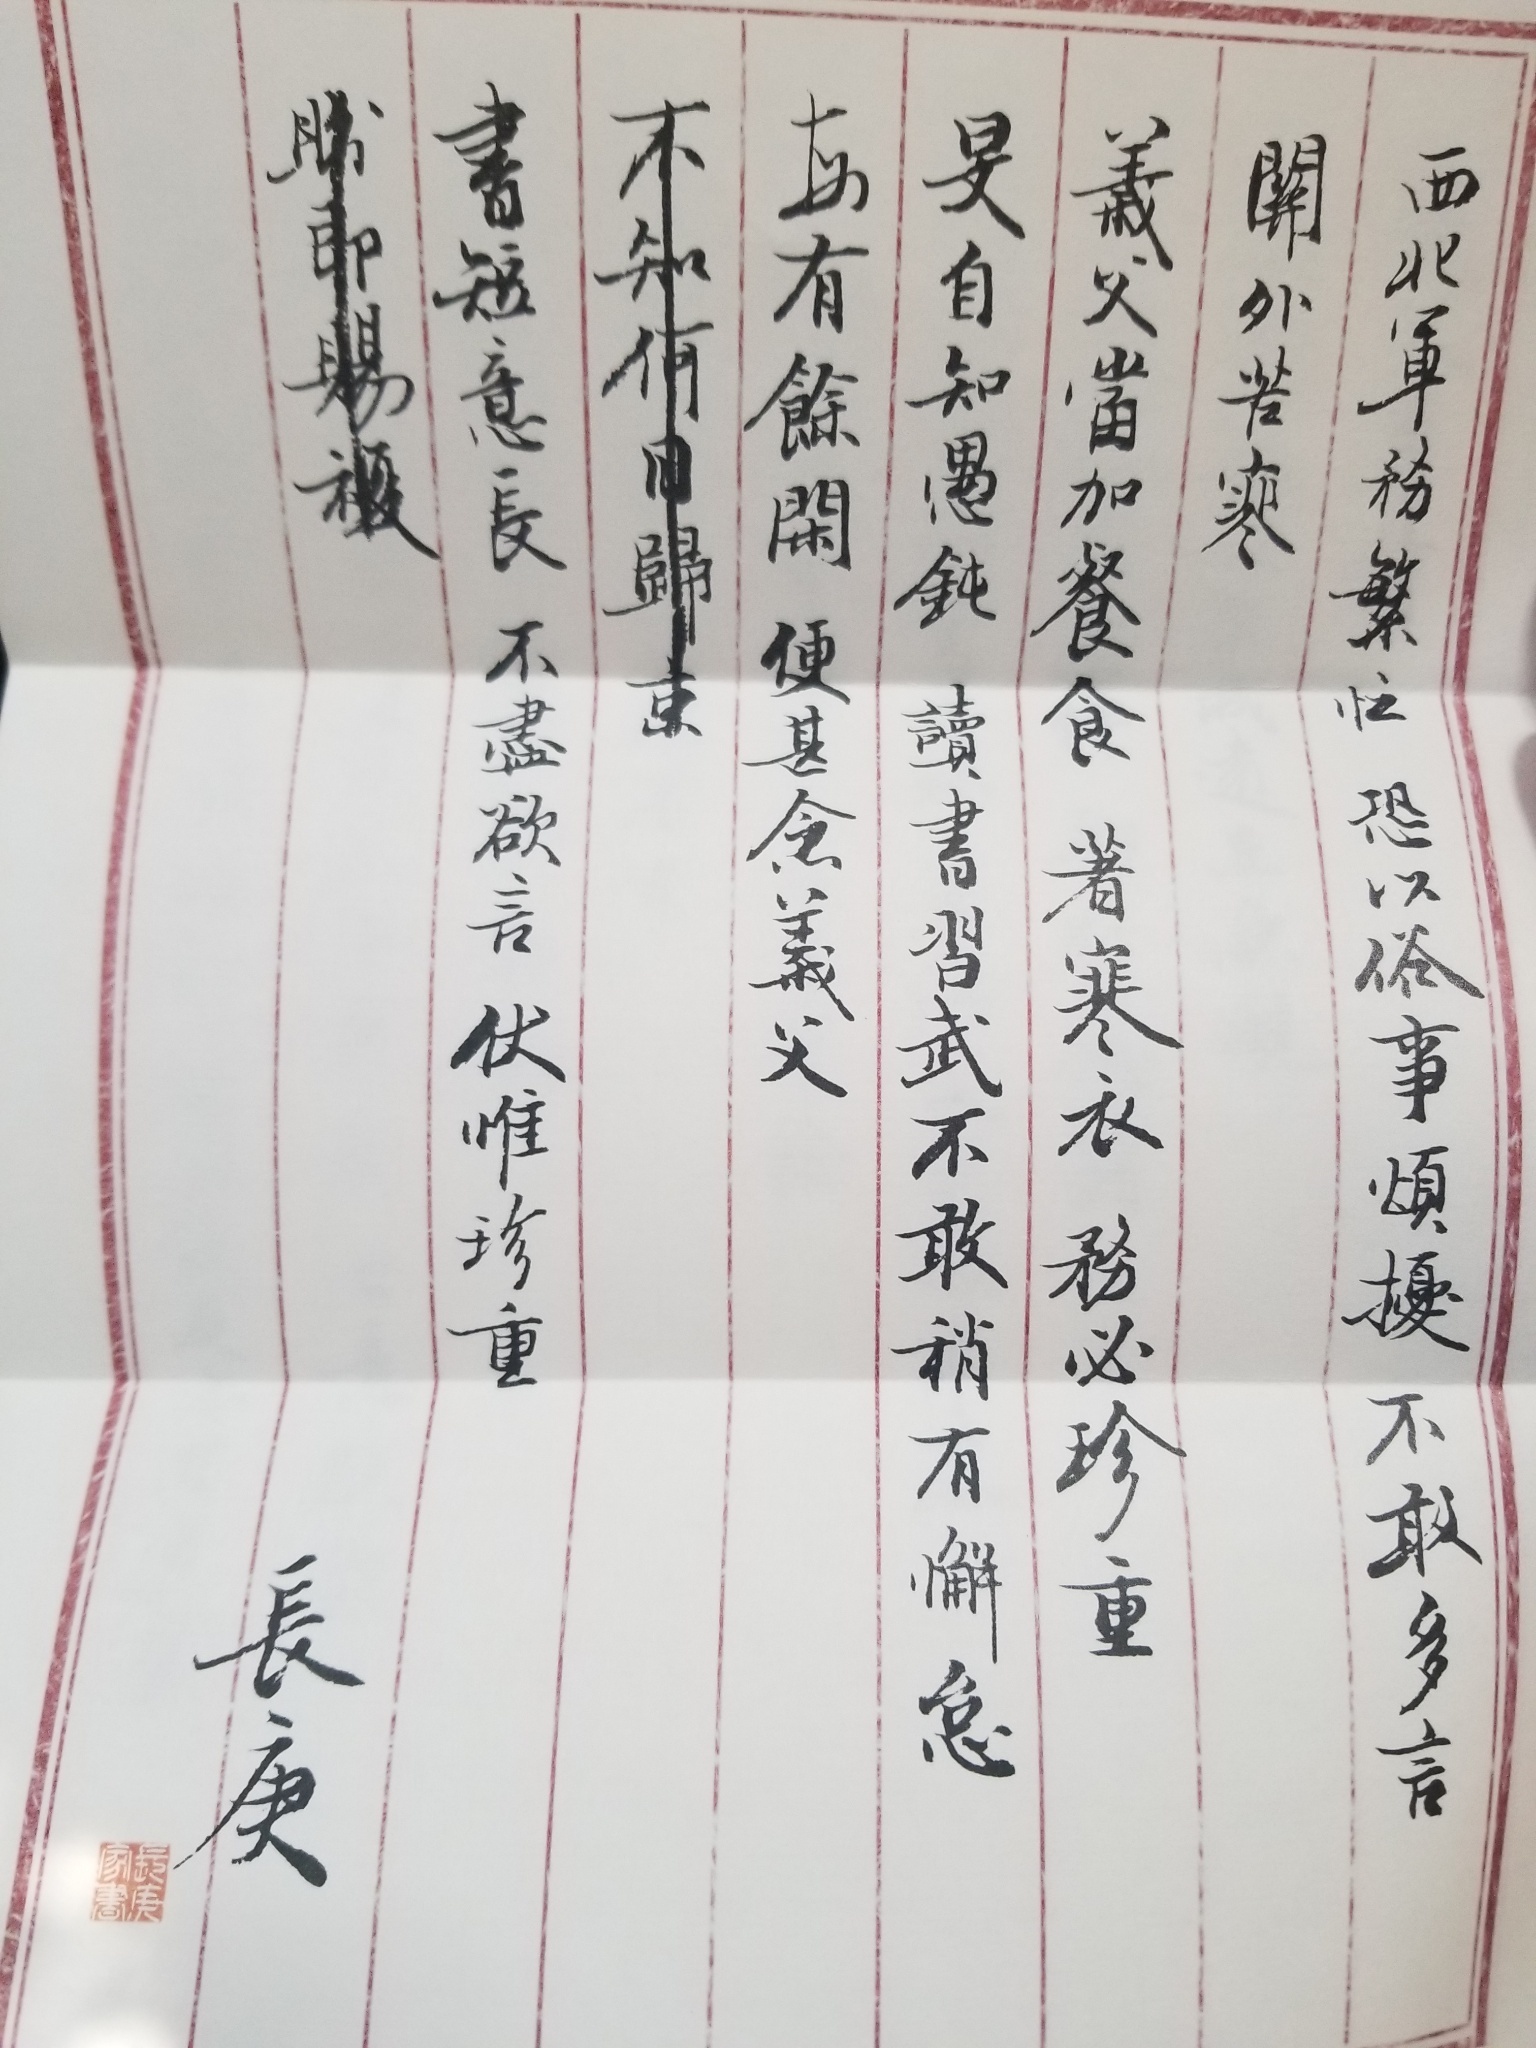 西北軍務繁忙 恐以俗事煩擾 不敢多言
關外苦寒
義父當加餐食 著寒衣 務必珍重
旻自知愚鈍 讀書習武不敢稍有懈怠
每有餘閑 便甚念義父
不知何日歸來
書短意長 不盡欲言 伏惟珍重
盼即賜覆
長庚
長庚
家書